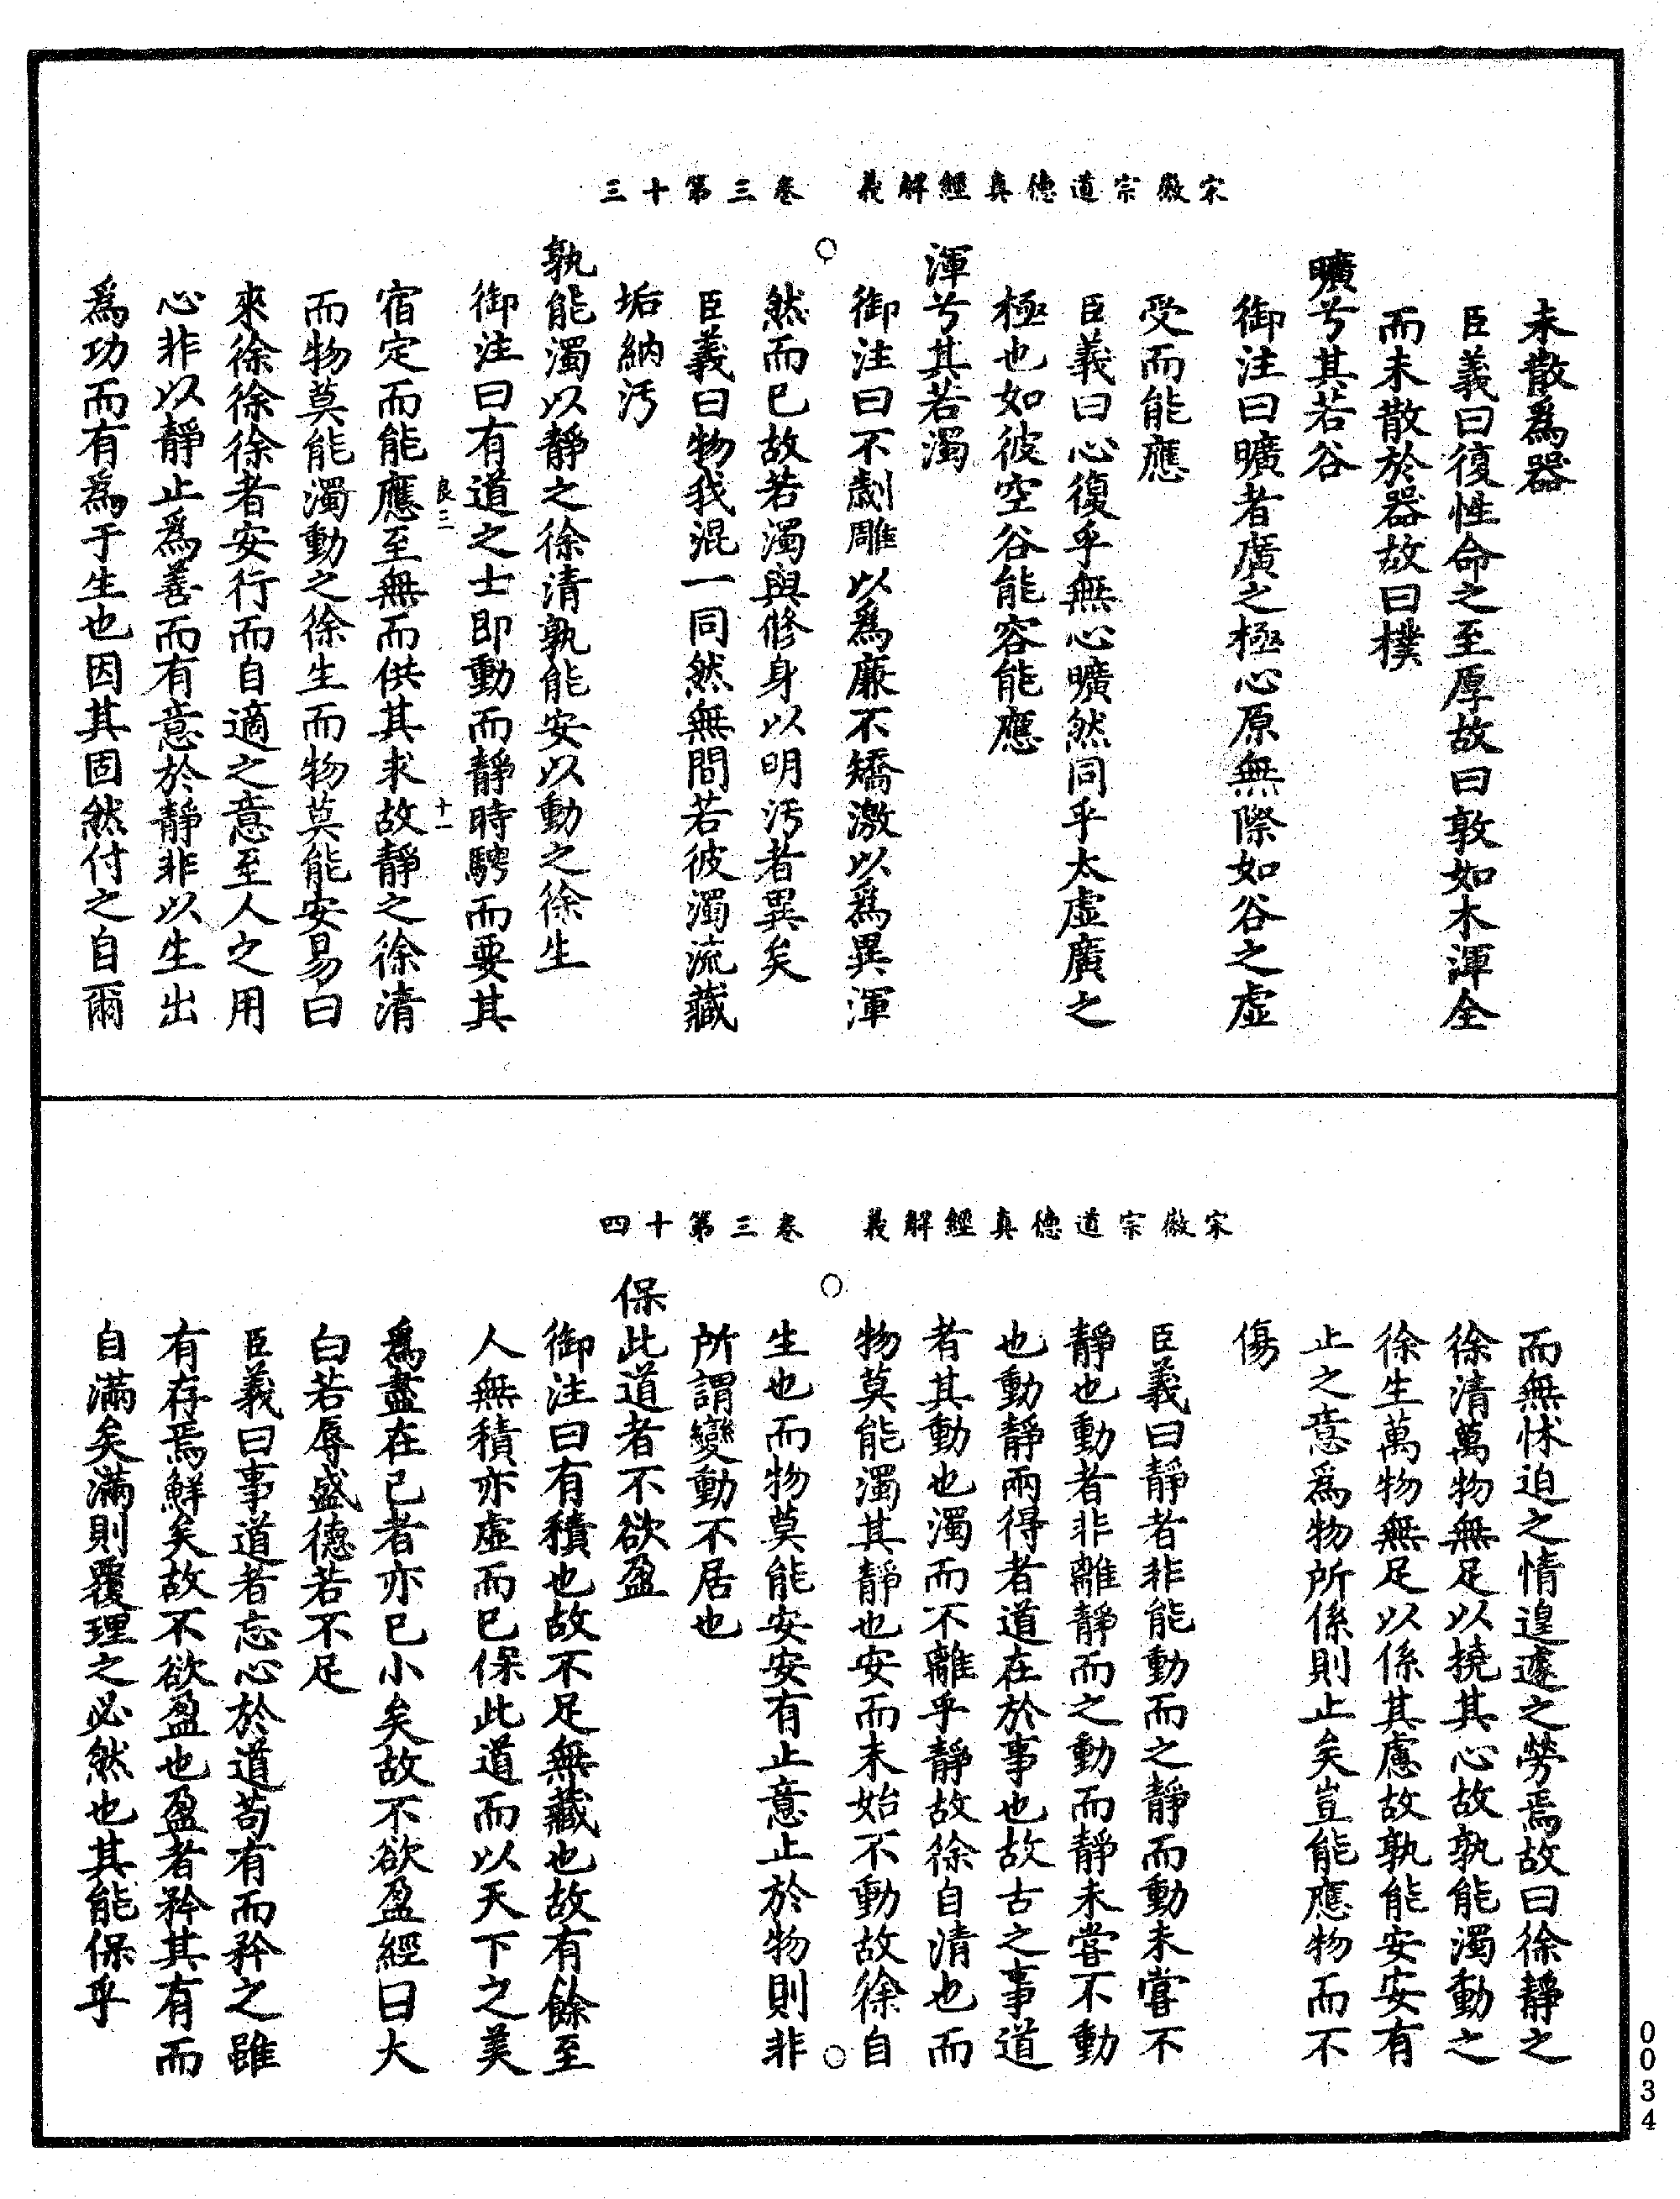 宋徽宗道德真經解義　卷三第十三
未散爲器
臣義曰復性命之至厚故曰敦如木渾全
而未散於器故曰樸
曠兮其若谷
御注曰曠者廣之極心原無際如谷之虛
受而能應
臣義曰心復乎無心曠然同乎太虛廣之
極也如彼空谷能容能應
渾兮其若濁
御注曰不劌雕以爲廉不矯激以爲異渾
然而已故若濁與修身以明汚者異矣
臣義曰物我混一同然無間若彼濁流藏
垢納汚
孰能濁以靜之徐清孰能安以動之徐生
御注曰有道之士即動而靜時騁而要其
良三　十一
宿定而能應至無而供其求故靜之徐清
而物莫能濁動之徐生而物莫能安易曰
來徐徐徐者安行而自適之意至人之用
心非以靜止爲善而有意於靜非以生出
爲功而有爲于生也因其固然付之自爾
宋徽宗道德真經解義　卷三第十四
而無怵迫之情遑遽之勞焉故曰徐靜之
徐清萬物無足以撓其心故孰能濁動之
徐生萬物無足以係其慮故孰能安安有
止之意爲物所係則止矣豈能應物而不
傷
臣義曰靜者非能動而之靜而動未嘗不
靜也動者非離靜而之動而靜未嘗不動
也動靜兩得者道在於事也故古之事道
者其動也濁而不離乎靜故徐自清也而
物莫能濁其靜也安而未始不動故徐自
生也而物莫能安安有止意止於物則非
所謂變動不居也
保此道者不欲盈
御注曰有積也故不足無藏也故有餘至
人無積亦虛而已保此道而以天下之美
爲盡在己者亦已小矣故不欲盈經曰大
白若辱盛德若不足
臣義曰事道者忘心於道苟有而矜之雖
有存焉鮮矣故不欲盈也盈者矜其有而
自滿矣滿則覆理之必然也其能保乎
0034